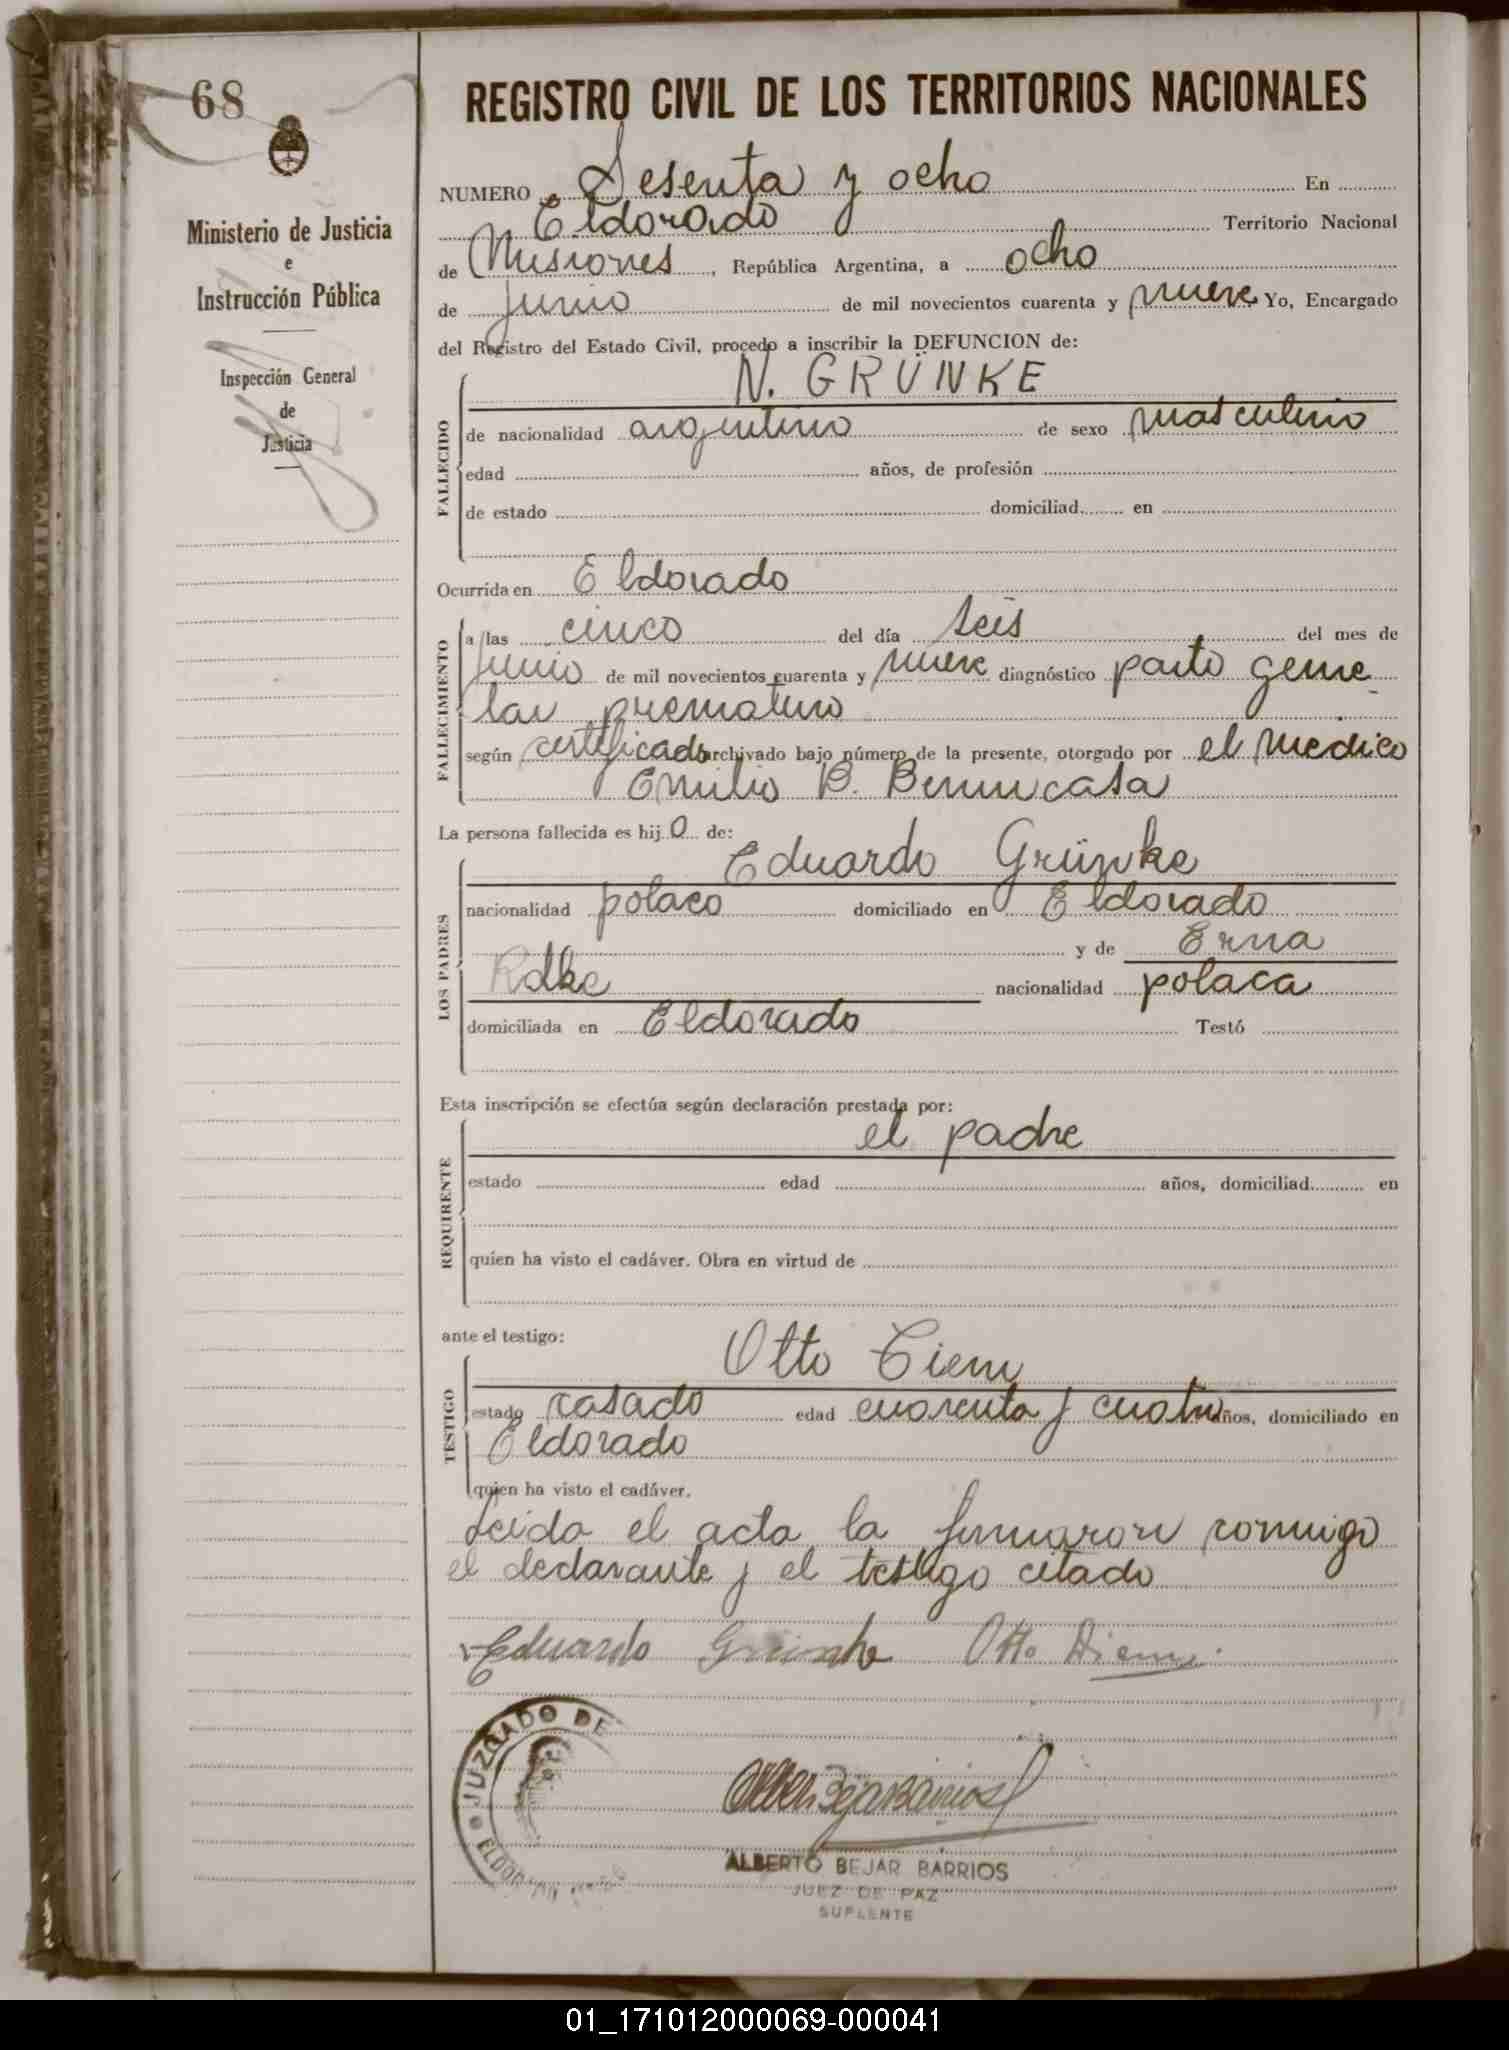 68
REGISTRO CIVIL DE LOS TERRITORIOS NACIONALES
Ministerio de Justicia
e
Instrucción Pública
Inspección General
de
Justicia
NUMERO Sesenta y ocho En
Eldorado Territorio Nacional
de Misiones, República Argentina, a ocho
de junio de mil novecientos cuarenta y nueve Yo, Encargado
del Registro del Estado Civil, procedo a inscribir la DEFUNCION de:
FALLECIDO
N. GRÜNKE
de nacionalidad argentino de sexo masculino
edad años, de profesión
de estado domiciliad en
Ocurrida en Eldorado
FALLECIMIENTO
a las cinco del día seis del mes de
junio de mil novecientos cuarenta y nueve diagnóstico parto geme
lar prematuro
según certificado archivado bajo número de la presente, otorgado por el medico
Emilio B.
La persona fallecida es hijo de:
LOS PADRES
Eduardo Grünke
nacionalidad polaco domiciliado en Eldorado
y de Erna
nacionalidad polaca
domiciliada en Eldorado Testó
Esta inscripción se efectúa según declaración prestada por:
REQUIRENTE
el padre
estado edad años, domiciliad en
quien ha visto el cadáver. Obra en virtud de
ante el testigo:
TESTIGO
Otto Ciem
estado casado edad cuarenta y cuatro años, domiciliado en
Eldorado
quien ha visto el cadáver.
Leida el acta la firmaron conmigo
el declarante y el testigo citado
Eduardo Grünke Otto Diem
JUZGADO DE
ALBERTO BEJAR BARRIOS
JUEZ DE PAZ
SUPLENTE
01_171012000069-000041